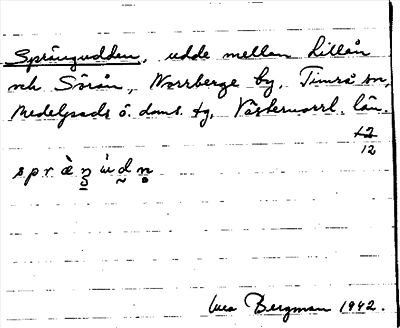 Sprängudden, udde mellan Lillån
och Sörån, Norrberge by, Timrå sn,
Medelpads ö. doms. tg, Västernorrl. län.
12
12
s p r æ̀ ŋ ù d n̥
Bergman 1942.